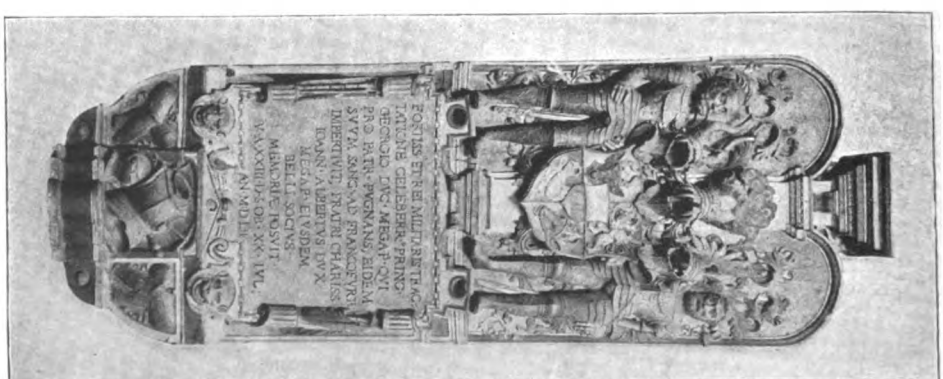 FORTISS ET REI MILITARE TRAC
TATIONE CELEBERR PRINC
GEORGIO DVC MEGAP QVI
PRO PATR PVGNANS, EIDEM
SVVM SANG AD FRANCOFVRT
IMPERTIVIT, FRATRI CHARISS
IOANN ALBERTVS DVX
MEGAP EIVSDEM
BELL SOCIVS
MEMORIE POSVIT
OB XX IVL
AN MDLII